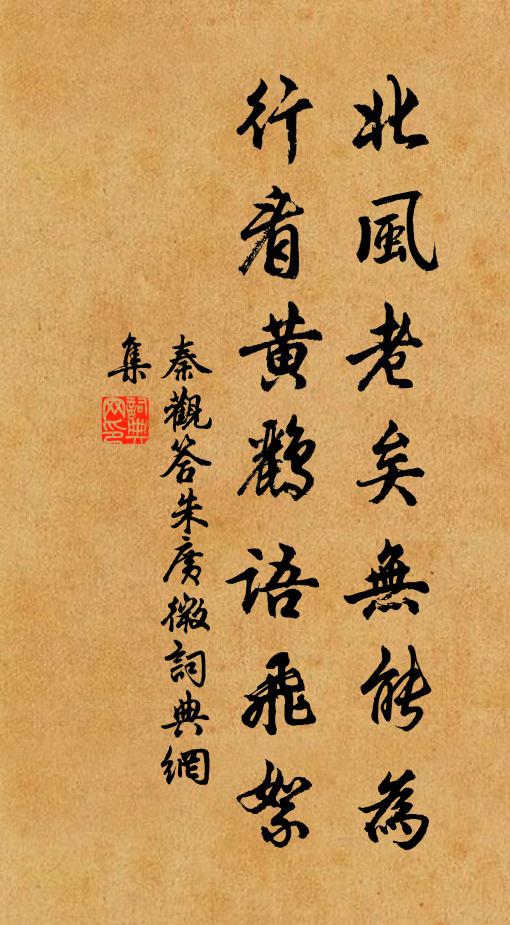 北風老矣無能為
行看黃鸝語飛絮
秦觀答朱廣微詞典網
集
詞典
网印